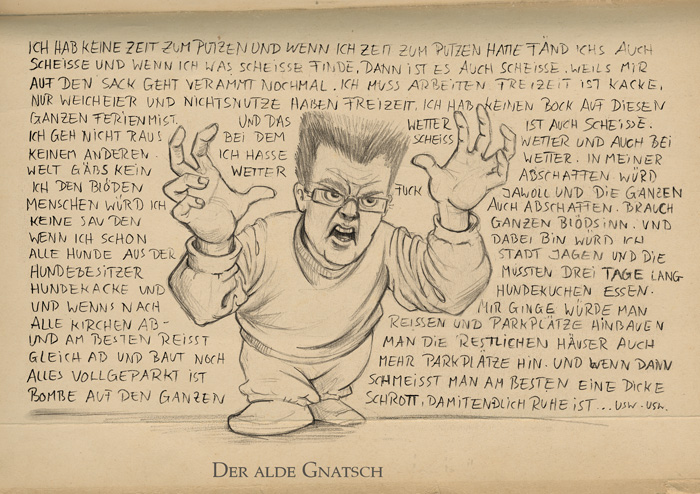 ICH HAB KEINE ZEIT ZUM PUTZEN UND WENN ICH ZEIT ZUM PUTZEN HÄTTE FÄND ICHS AUCH
SCHEISSE UND WENN ICH WAS SCHEISSE FINDE, DANN IST ES AUCH SCHEISSE. WEILS MIR
AUF DEN SACK GEHT VERAMMT NOCHMAL. ICH MUSS ARBEITEN FREIZEIT IST KACKE,
NUR WEICHEIER UND NICHTSNUTZE HABEN FREIZEIT. ICH HAB KEINEN BOCK AUF DIESEN
GANZEN FERIENMIST. UND DAS WETTER IST AUCH SCHEISSE.
ICH GEH NICHT RAUS BEI DEM SCHEISS WETTER UND AUCH BEI
KEINEM ANDEREN. ICH HASSE WETTER. IN MEINER
WELT GÄBS KEIN WETTER ABSCHAFFEN WÜRD
ICH DEN BLÖDEN FUCK JAWOLL UND DIE GANZEN
MENSCHEN WÜRD ICH AUCH ABSCHAFFEN. BRAUCH
KEINE SAU DEN GANZEN BLÖDSINN. UND
WENN ICH SCHON DABEI BIN WÜRD ICH
ALLE HUNDE AUS DER STADT JAGEN UND DIE
HUNDEBESITZER MÜSSTEN DREI TAGE LANG
HUNDEKACKE UND HUNDEKUCHEN ESSEN.
UND WENNS NACH MIR GINGE WÜRDE MAN
ALLE KIRCHEN AB- REISSEN UND PARKPLÄTZE HINBAUEN
UND AM BESTEN REISST MAN DIE RESTLICHEN HÄUSER AUCH
GLEICH AB UND BAUT NOCH MEHR PARKPLÄTZE HIN. UND WENN DANN
ALLES VOLLGEPARKT IST SCHMEISST MAN AM BESTEN EINE DICKE
BOMBE AUF DEN GANZEN SCHROTT, DAMIT ENDLICH RUHE IST... USW. USW.
DER ALDE GNATSCH